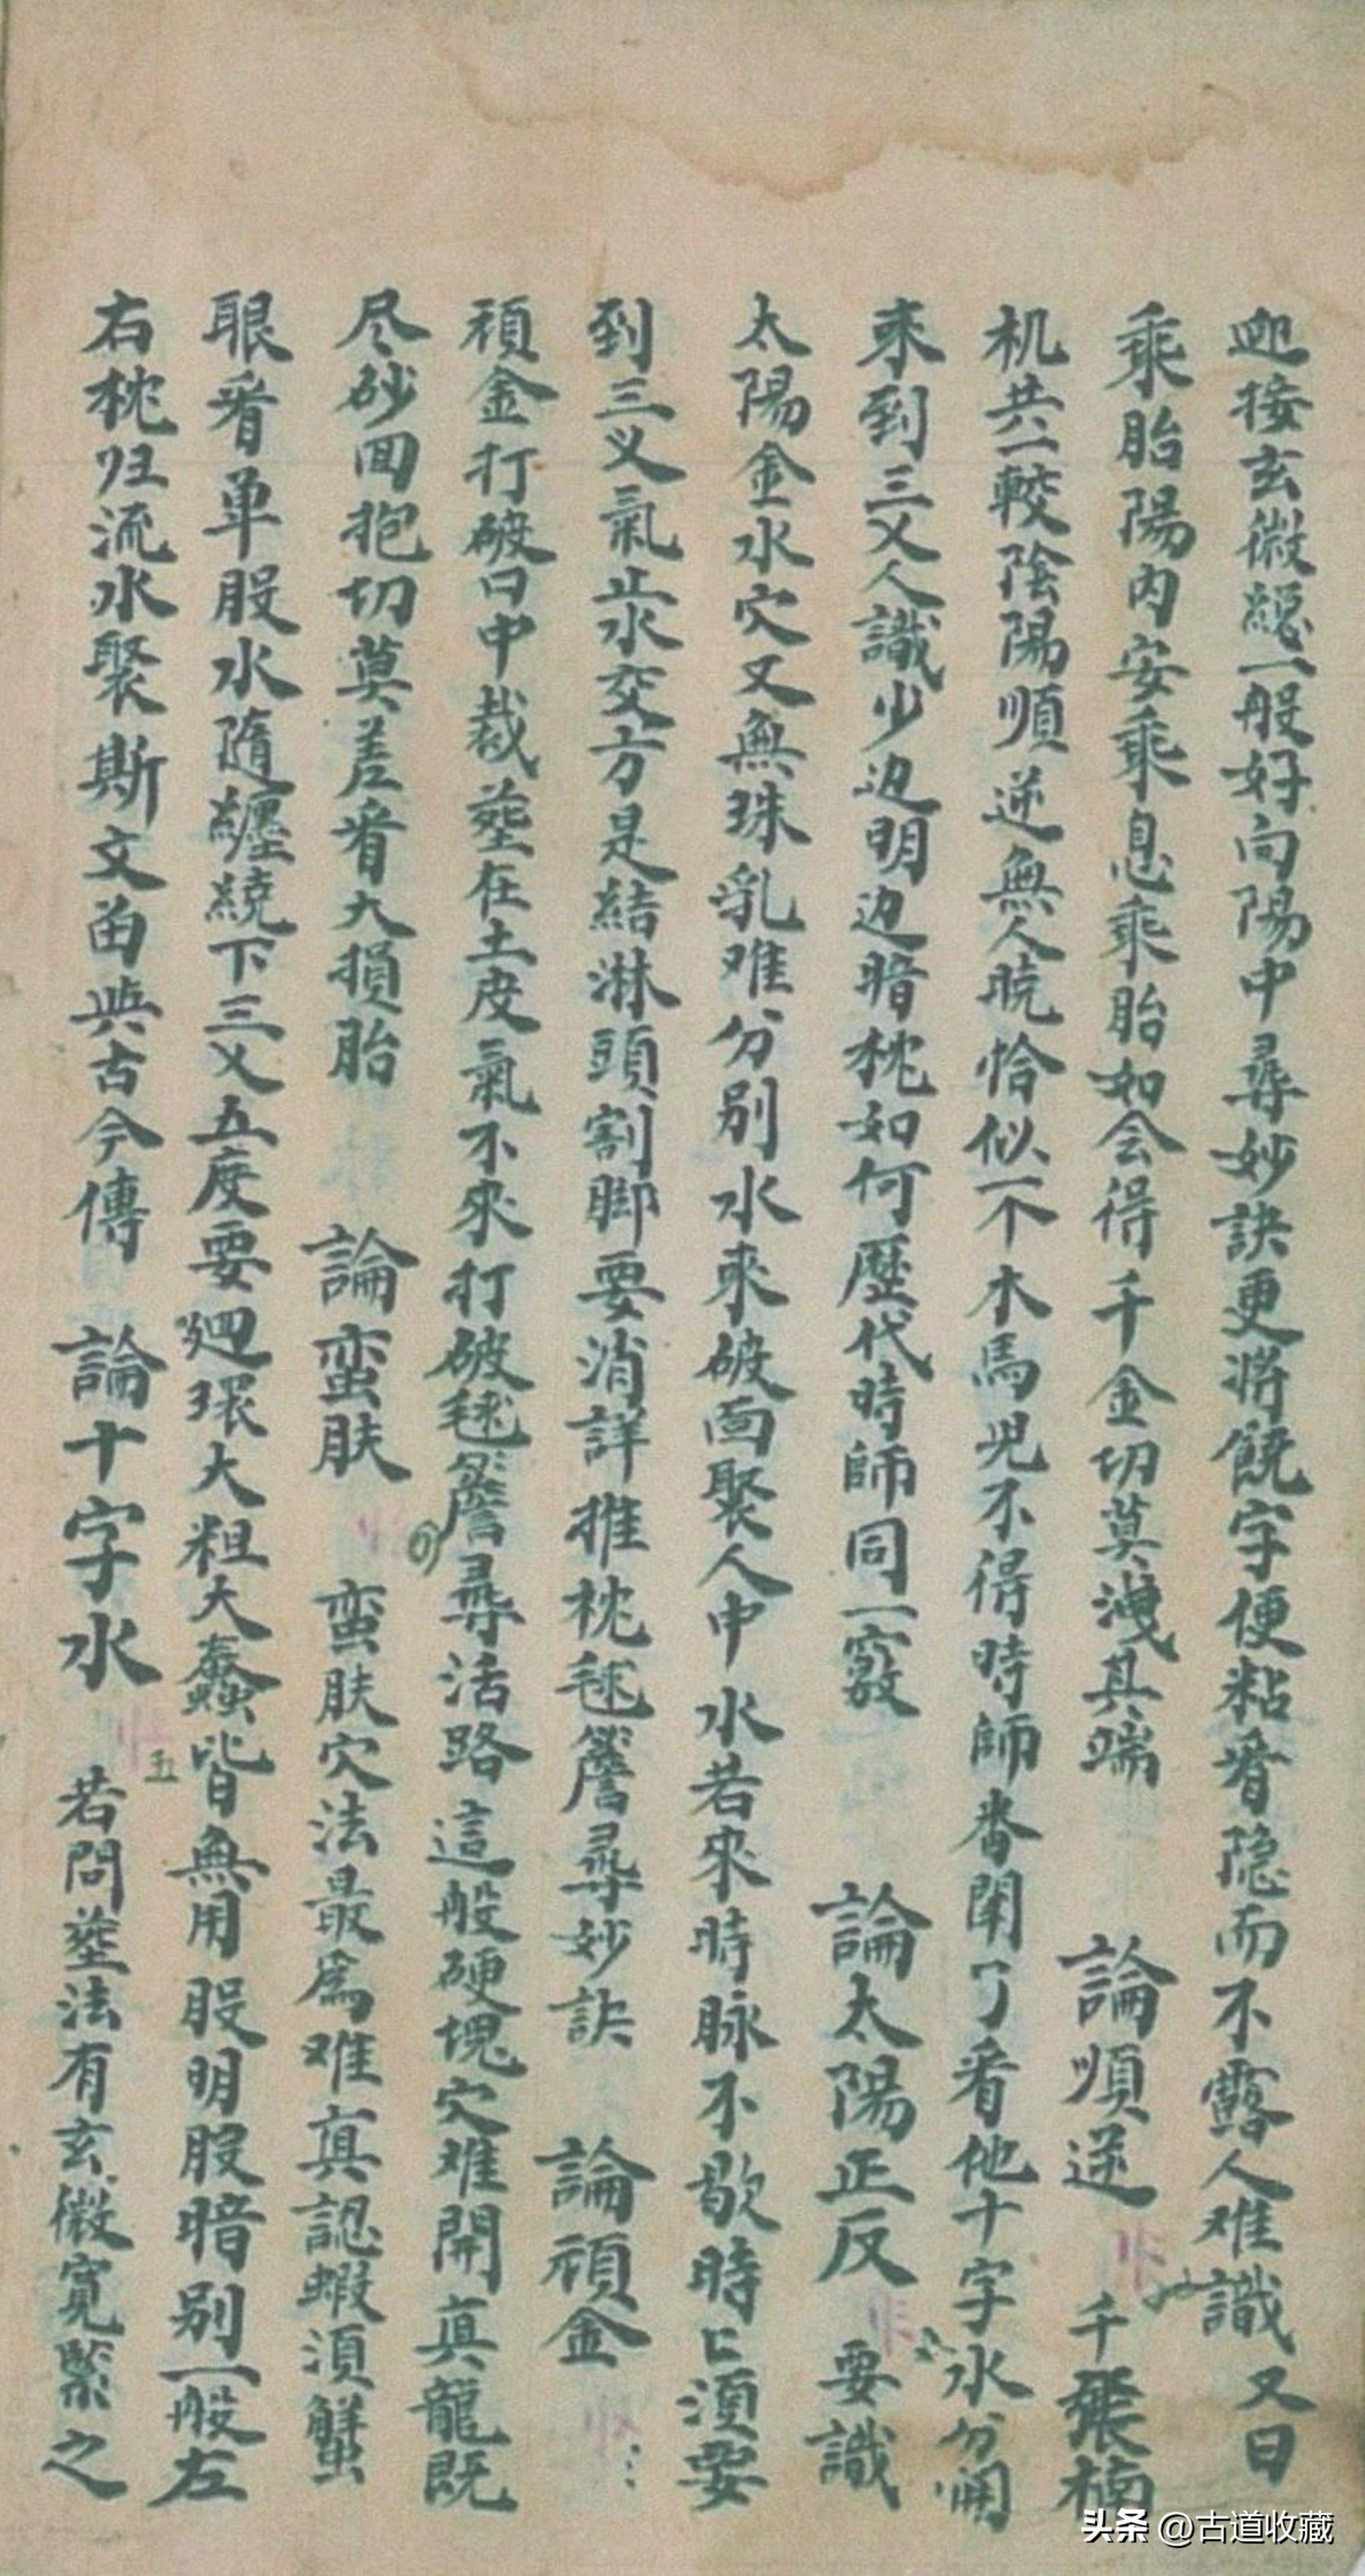 迎接玄微總一般好向陽中尋妙訣更將饒字便粘看隐而不露人难識又曰
乘胎陽内安乘息乘胎如会得千金切莫洩其端 論順逆 千般楠
机共一較陰陽順逆無人曉恰似一个木馬兜不得時師番開了看他十字水分開
來到三义人識少边明边暗枕如何歷代時師同一竅 論太陽正反 要識
太陽金水穴又無珠乳难分别水來破面聚人中水若來時脉不歇時匕須要
到三义氣止水交方是結淋頭割脚要消詳推枕毬簷尋妙訣 論頑金
頑金打破口中裁塟在土皮氣不來打破毬簷尋活路這般硬塊穴难開真龍既
尽砂回抱切莫差看大損胎 論蛮肤 蛮肤穴法最為难真認蝦須蟹
眼看单股水隨纏繞下三义五度要廻環大粗大蠢皆無用股明股暗别一般左
右枕归流水聚斯文函典古今傳 論十字水 若問塟法有玄微寬緊之
五
头条 @古道收藏